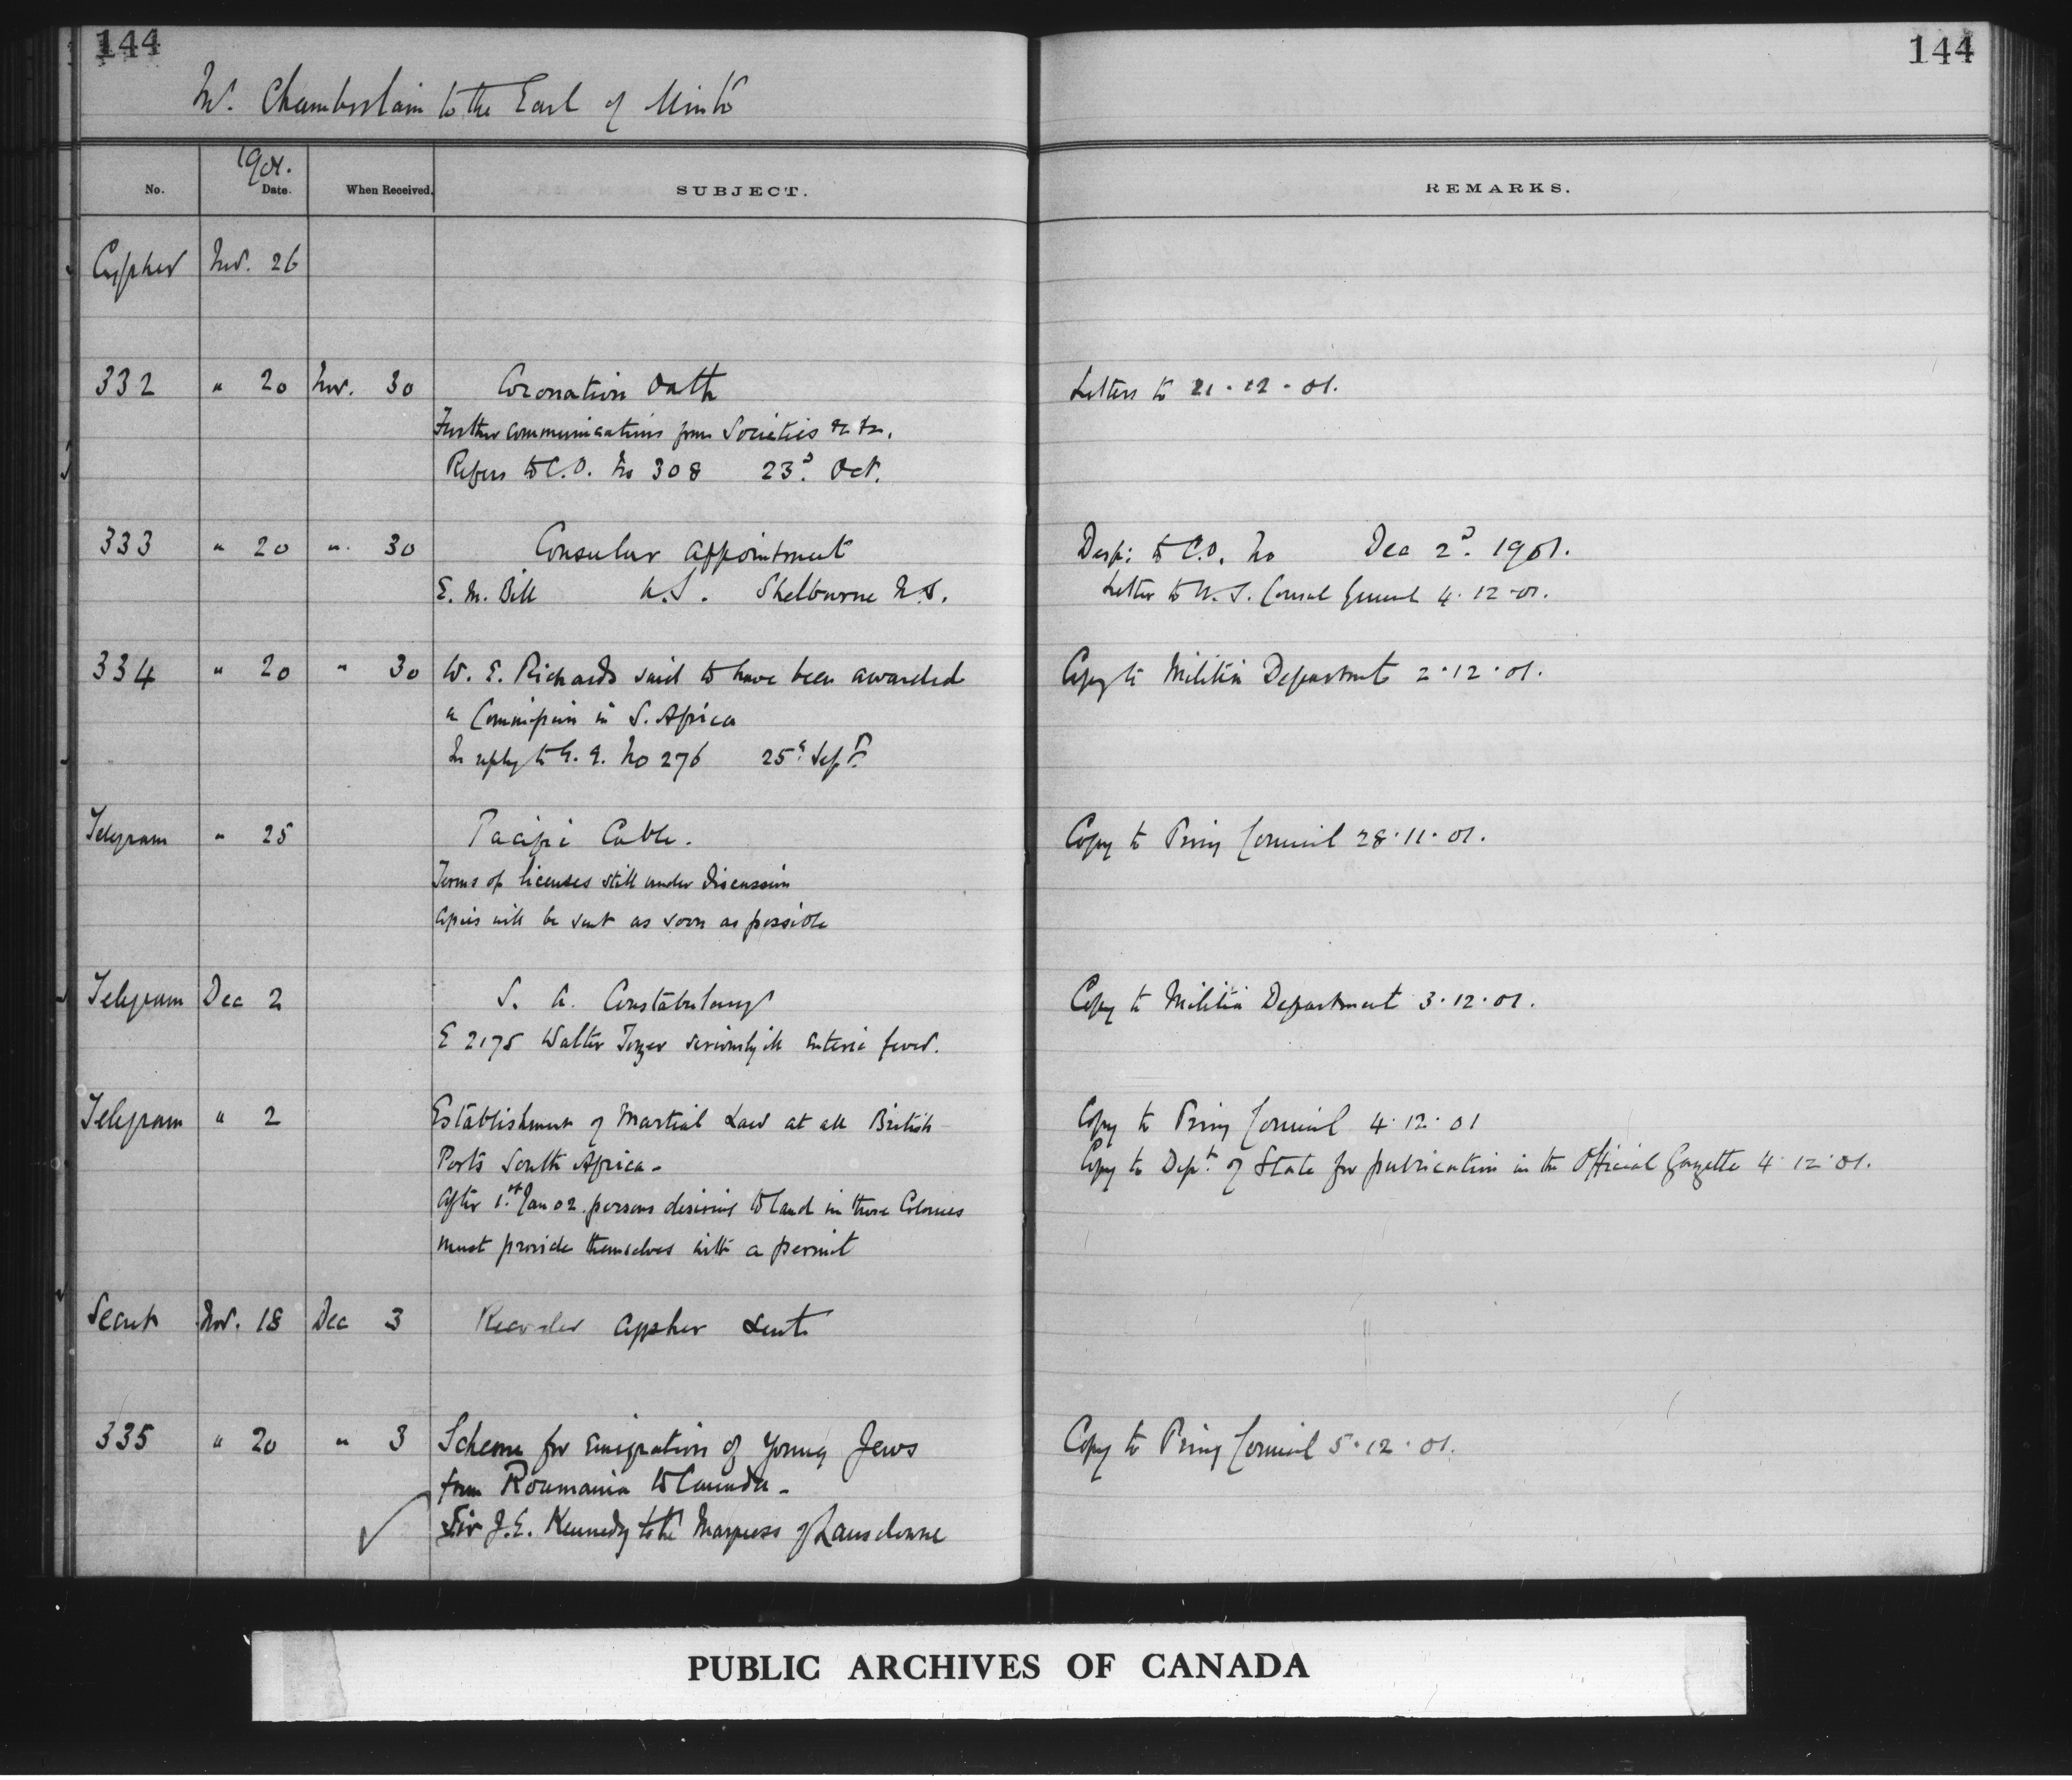 144
144
Mr. Chamberlain to the Earl of Minto
1901.
No. Date. When Received. SUBJECT. REMARKS.
Cypher Nov. 26
332 " 20 Nov. 30 Coronation Oath Letters to 21.12.01.
Further communications from Societies &c &c.
Refers to C.O. No 308 23d. Oct.
333 " 20 " 30 Consular Appointment Desp: to C.O. No Dec 2d. 1901.
E. M. Bill U.S. Shelburne N.S. Letter to U.S. Consul General 4.12.01.
334 " 20 " 30 W. E. Richards said to have been awarded Copy to Militia Department 2.12.01.
a Commission in S. Africa
In reply to G. G. No 276 25th Sept.
Telegram " 25 Pacific Cable. Copy to Privy Council 28.11.01.
Terms of licenses still under discussion
Copies will be sent as soon as possible
Telegram Dec 2 S. A. Constabulary Copy to Militia Department 3.12.01.
E 2175 Walter Tozer seriously ill enteric fever.
Telegram " 2 Establishment of Martial Law at all British Copy to Privy Council 4.12.01
Ports South Africa - Copy to Dept. of State for publication in the Official Gazette 4.12.01.
After 1st Jan 02. persons desiring to land in those Colonies
must provide themselves with a permit
Secret Nov. 18 Dec 3 Recorder Cypher sent
335 " 20 " 3 Scheme for emigration of young Jews Copy to Privy Council 5.12.01.
from Roumania to Canada -
Sir J.E. Kennedy to the Marquess of Lansdowne
PUBLIC ARCHIVES OF CANADA